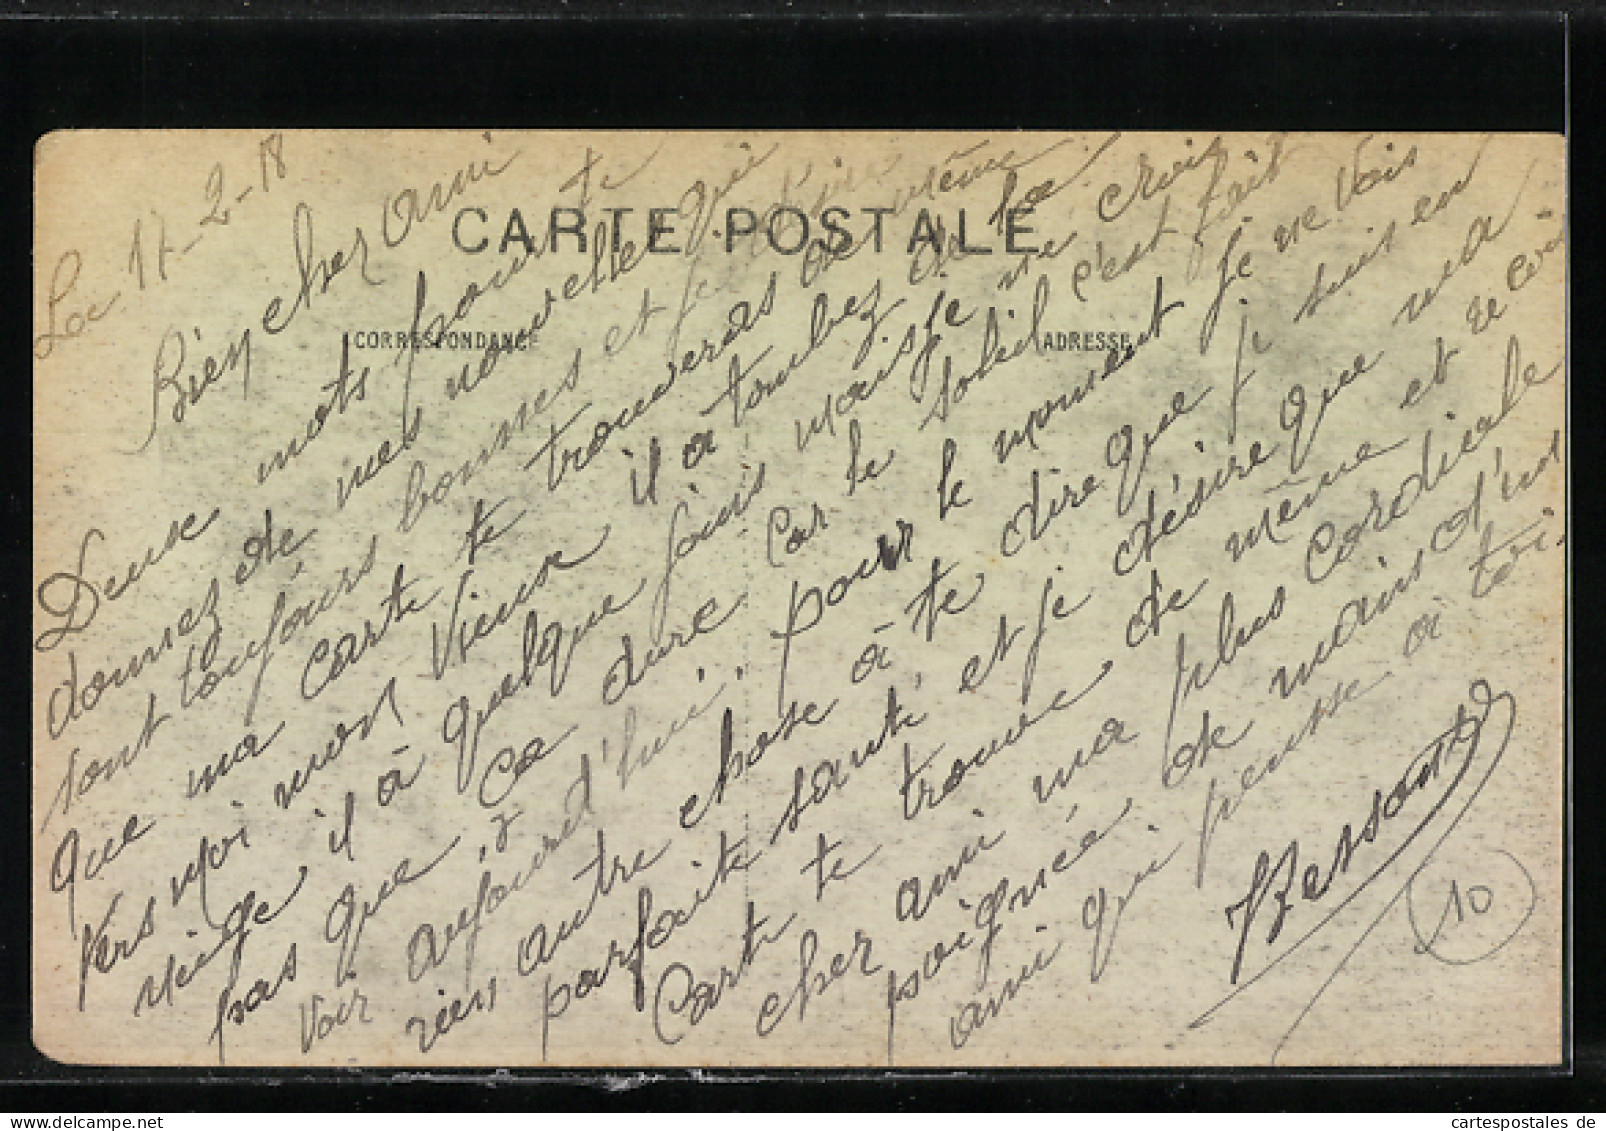 Le 17-2-18
Bien cher ami
Deux mots pour te
donnez de mes nouvelles qui
sont toujours bonnes et je désire
que ma carte te trouveras de même
vers moi mon vieux il a tombez de la
neige il à quelque jours mais je ne crois
pas que ça dure car le soleil c'est fait
voir aujourd'hui, pour le moment je ne vois
rien autre chose à te dire que je suis en
parfaite santé et je désire que ma
carte te trouve de même et reçoi
cher ami ma plus cordiale
poignée de mains d'un
ami qui pensse à toi.
Bessout
CARTE POSTALE
CORRESPONDANCE
ADRESSE
10
cartespostales de